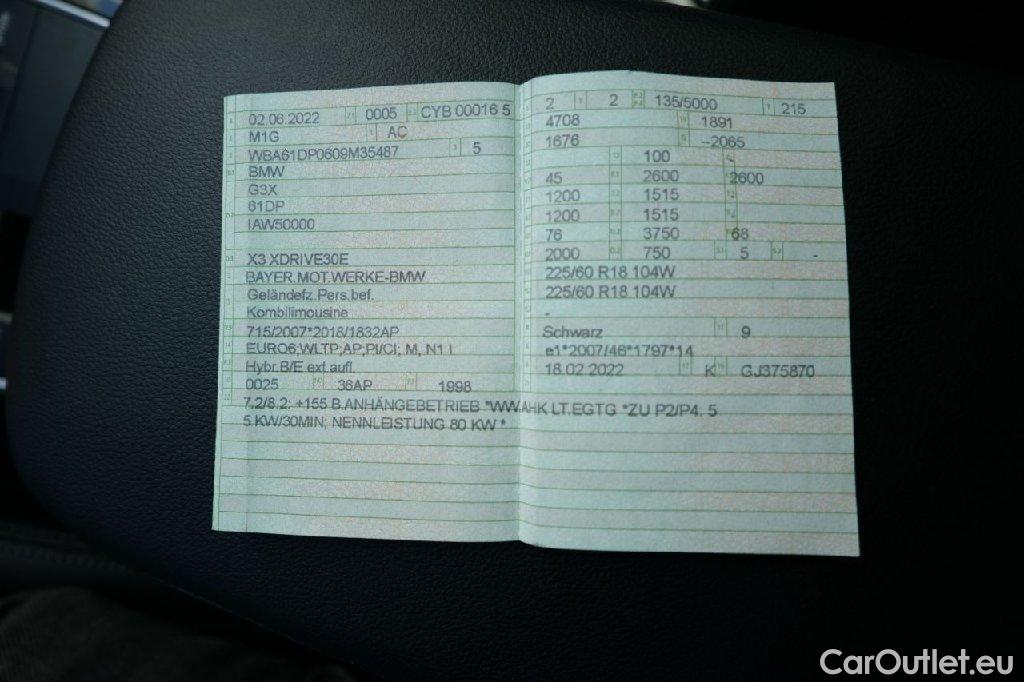 02.06.2022 0005 CYB 00016 5
M1G AC
WBA61DP0609M35487 5
BMW
G3X
61DP
IAW50000
X3 XDRIVE30E
BAYER.MOT.WERKE-BMW
Geländefz.Pers.bef.
Kombilimousine
715/2007*2018/1832AP
EURO6;WLTP;AP;PI/CI; M, N1 I
Hybr.B/E ext.aufl.
0025 36AP 1998
7.2/8.2: +155 B.ANHÄNGEBETRIEB *WW.AHK LT.EGTG *ZU P2/P4: 5
5 KW/30MIN; NENNLEISTUNG 80 KW *
2 2 135/5000 215
4708 1891
1676 --2065
100 -
45 2600 2600
1200 1515 -
1200 1515 -
76 3750 68
2000 750 5 -
225/60 R18 104W
225/60 R18 104W
-
Schwarz 9
e1*2007/46*1797*14
18.02.2022 K GJ375870
CarOutlet.eu